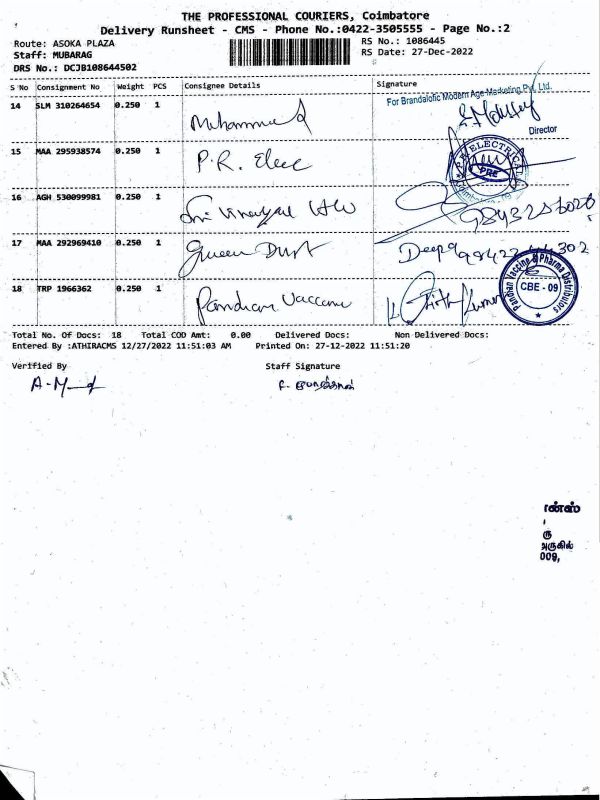 THE PROFESSIONAL COURIERS, Coimbatore
Delivery Runsheet - CMS - Phone No.:0422-3505555 - Page No.:2
Route: ASOKA PLAZA
RS No.: 1086445
Staff: MUBARAG
RS Date: 27-Dec-2022
DRS No.: DCJB108644502
S No Consignment No Weight PCS Consignee Details Signature
For Brandaholic Modern Age Marketing Pvt. Ltd.
14 SLM 310264654 0.250 1 Muhammed
Director
15 MAA 295938574 0.250 1 P.R. Elec
ELECTRICAL
PRE
16 AGH 530099981 0.250 1 Sri Vinayak
17 MAA 292969410 0.250 1 Queen Dust
Pandian Vaccine & Pharma Distributors
CBE - 09
18 TRP 1966362 0.250 1 Pandian Vaccine
Total No. Of Docs: 18 Total COD Amt: 0.00 Delivered Docs: Non Delivered Docs:
Entered By :ATHIRACMS 12/27/2022 11:51:03 AM Printed On: 27-12-2022 11:51:20
Verified By Staff Signature
ான்ஸ்
ரு
அருகில்
009,